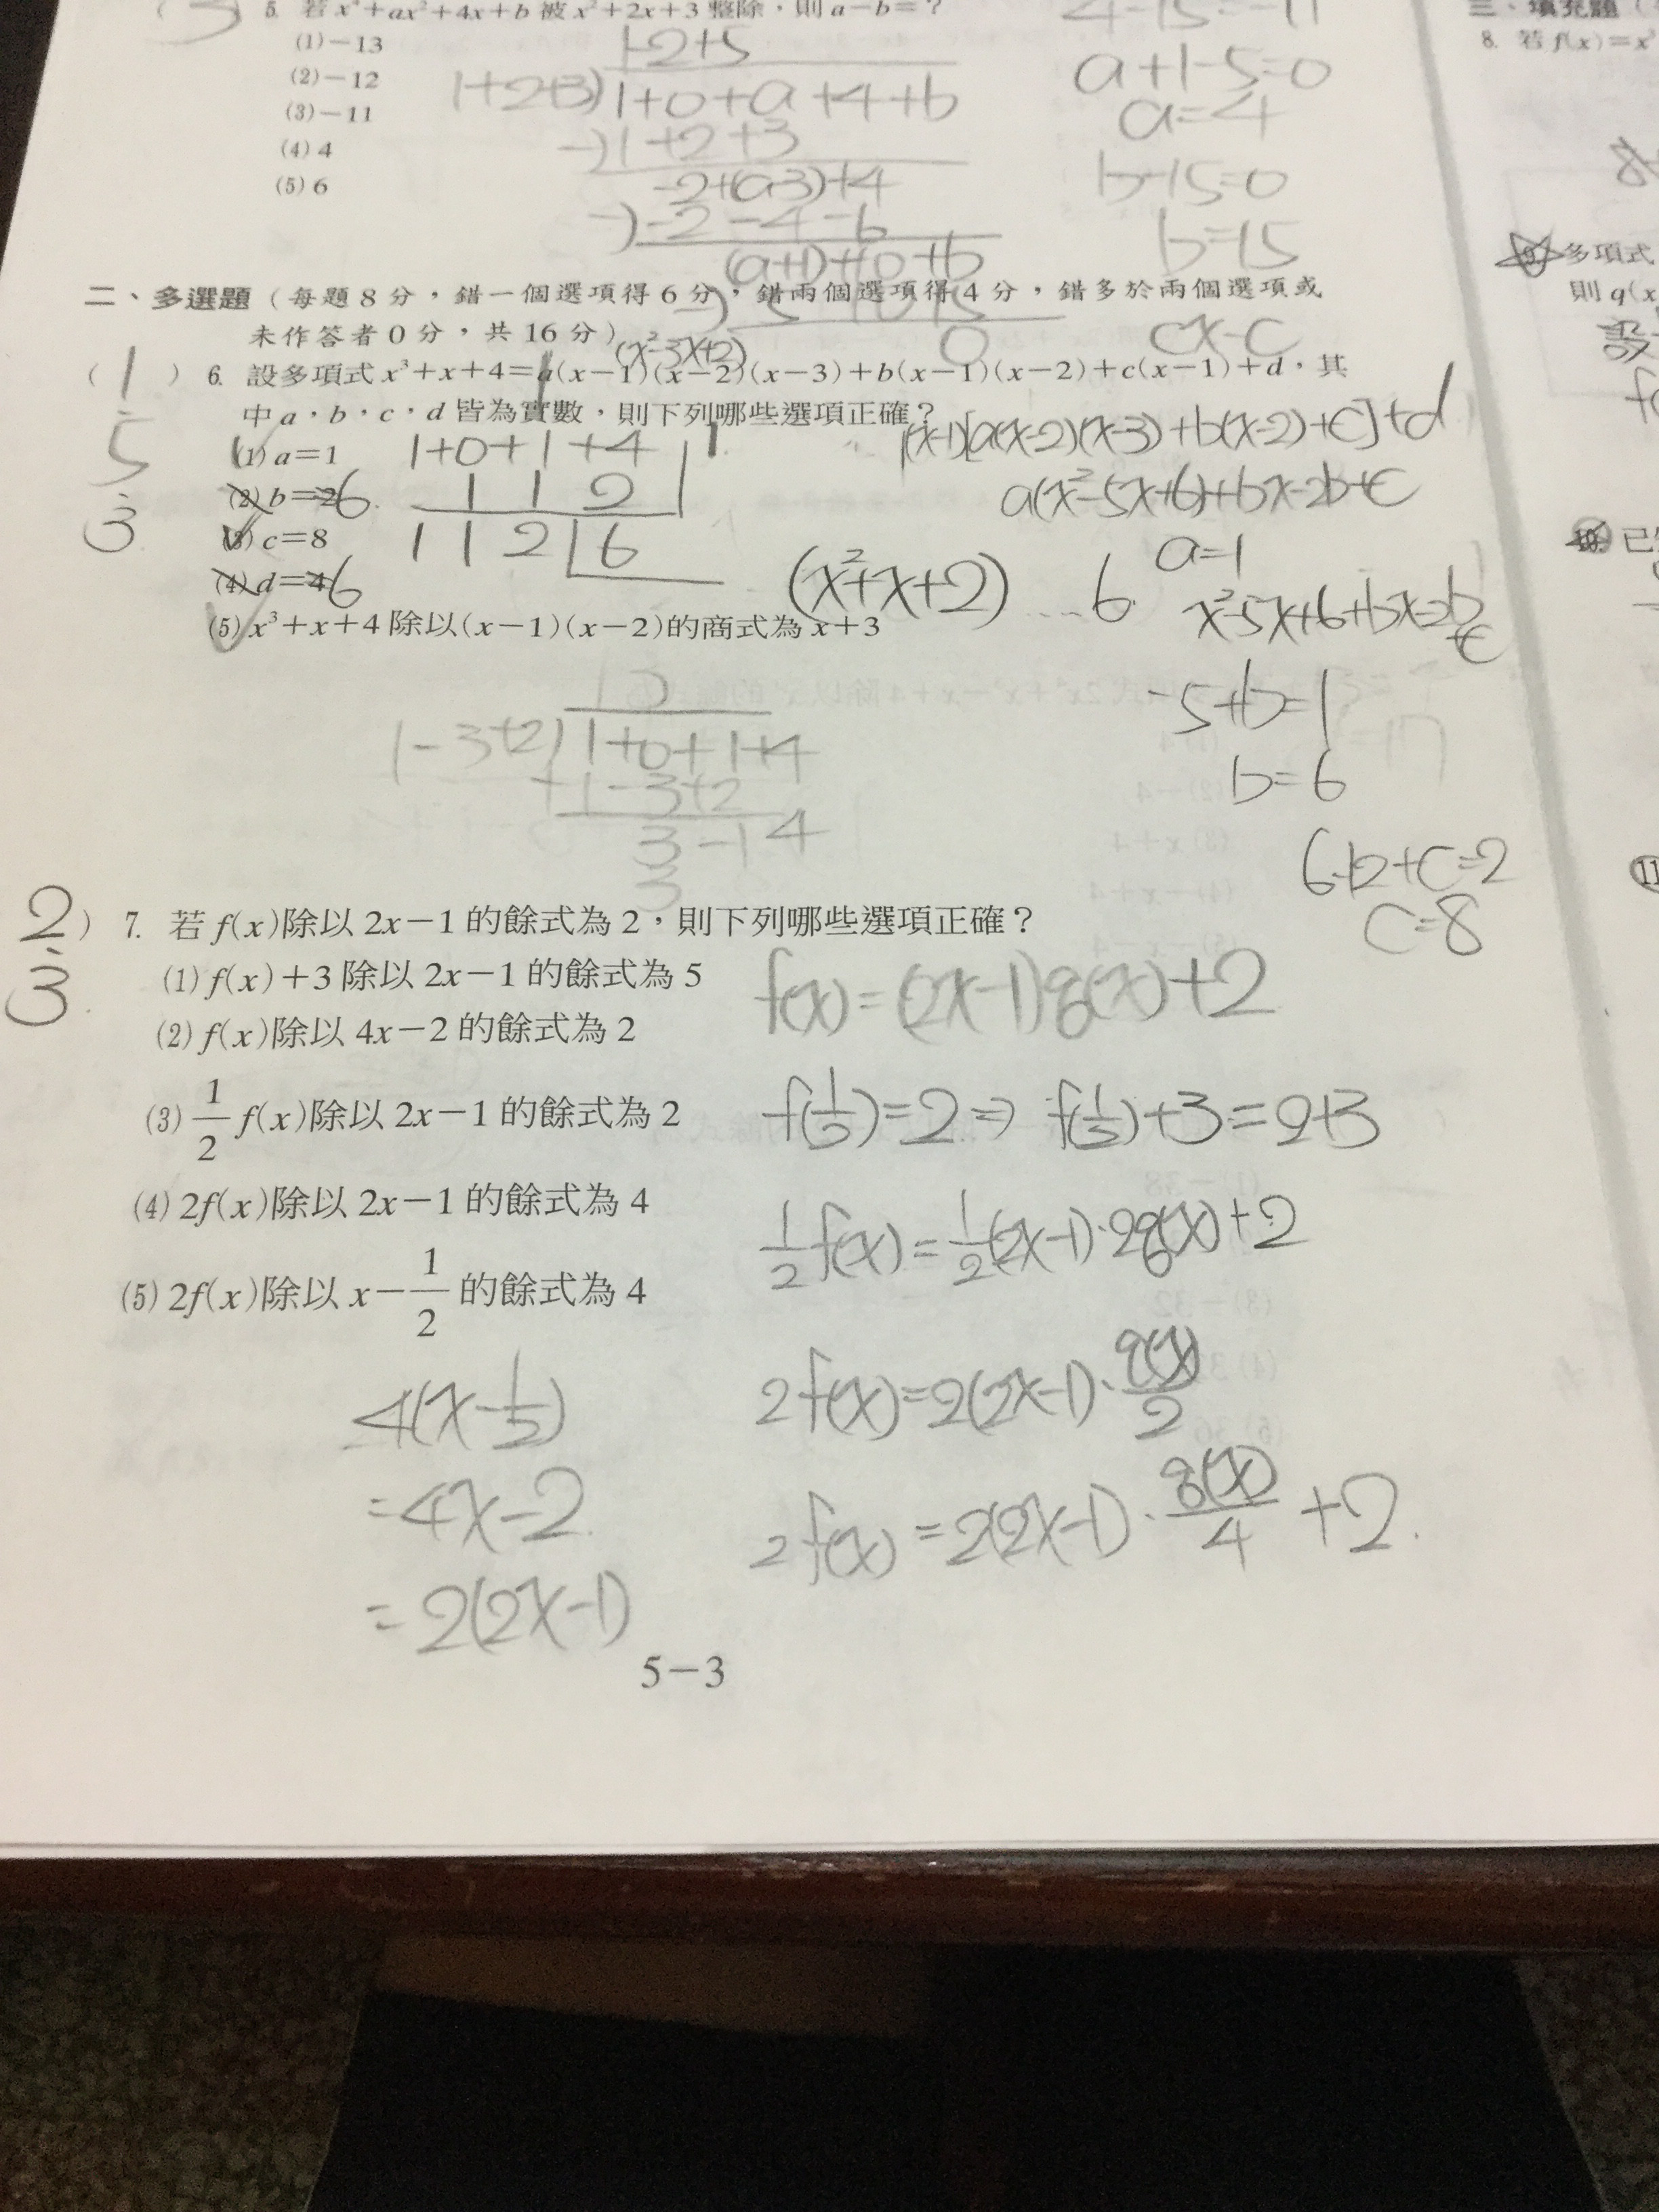 5. 若 x⁴+ax²+4x+b 被 x²+2x+3 整除，則 a−b=？
(1)−13
(2)−12
(3)−11
(4) 4
(5) 6
1-2+5
1+2+3)1+0+a+4+b
-)1+2+3
-2+(a-3)+4
-)-2-4-6
(a+1)+10+b
-) 5+10+15
0
4-15=-11
a+1-5=0
a=4
b-15=0
b=15
二、多選題（每題 8 分，錯一個選項得 6 分，錯兩個選項得 4 分，錯多於兩個選項或
未作答者 0 分，共 16 分）
(x²-3x+2)
cx-c
( 1 ) 6. 設多項式 x³+x+4=a(x−1)(x−2)(x−3)+b(x−1)(x−2)+c(x−1)+d，其
中 a，b，c，d 皆為實數，則下列哪些選項正確？
5
3
(1) a=1
(2) b=2 6
(3) c=8
(4) d=4 6
(5) x³+x+4 除以(x−1)(x−2)的商式為 x+3
1+0+1+4 1
1 1 2
1 1 2 6
(x²+x+2) ... 6
(x-1)[a(x-2)(x-3)+b(x-2)+c]+d
a(x²-5x+6)+bx-2b+c
a=1
x²-5x+6+bx-2b+c
-5+b=1
b=6
6-12+c=2
c=8
1-3+2)1+0+1+4
1-3+2
3-1 4
3
2
3
) 7. 若 f(x)除以 2x−1 的餘式為 2，則下列哪些選項正確？
(1) f(x)+3 除以 2x−1 的餘式為 5
(2) f(x)除以 4x−2 的餘式為 2
(3) 1/2 f(x)除以 2x−1 的餘式為 2
(4) 2f(x)除以 2x−1 的餘式為 4
(5) 2f(x)除以 x−1/2 的餘式為 4
f(x)=(2x-1)g(x)+2
f(1/2)=2⇒ f(1/2)+3=2+3
1/2 f(x)=1/2(2x-1)·2g(x)+2
2f(x)=2(2x-1)·g(x)/2
2f(x)=2(2x-1)·g(x)/4+2.
4(x-1/2)
=4x-2
=2(2x-1)
5−3
三、填充題
8. 若 f(x)=x³
9. 多項式
則 q(x
設
10. 已
11